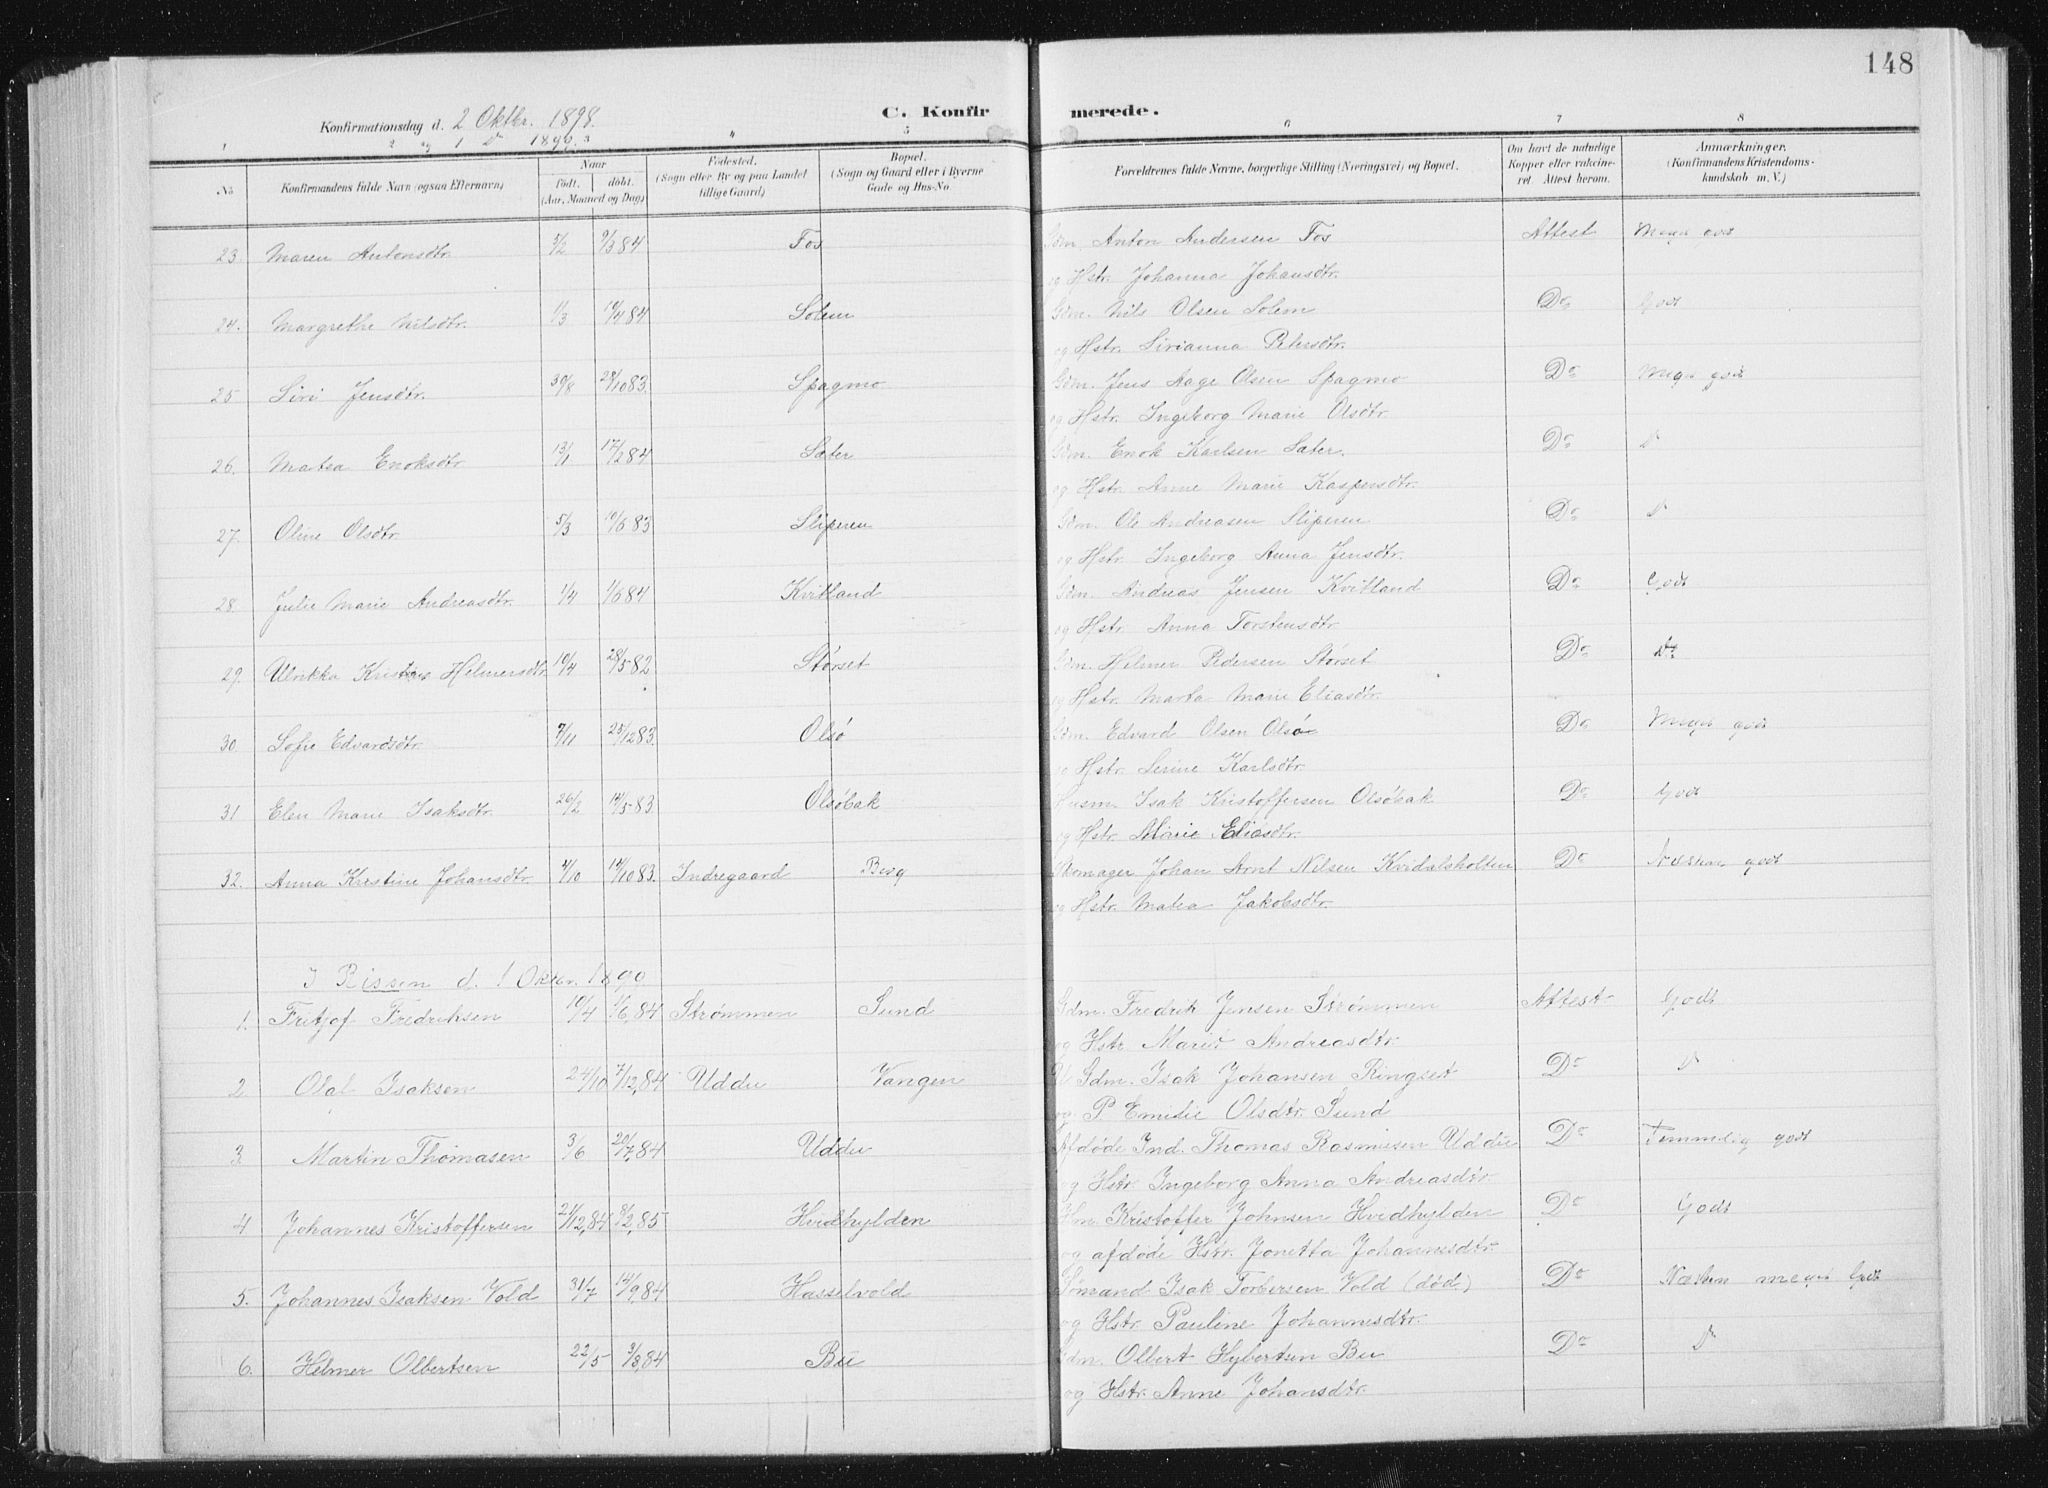 148
C. Konfirmerede.
Konfirmationsdag d. 2 Oktbr. 1898
og 1 Do 1899
1 2 3 4 5 6 7 8
No Konfirmandens fulde Navn (ogsaa Efternavn) Naar født. døbt. (Aar, Maaned og Dag) Fødested. (Sogn eller By og paa Landet tillige Gaard) Bopæl. (Sogn og Gaard eller i Byerne Gade og Hus-No. Forældrenes fulde Navne, borgerlige Stilling (Næringsvei) og Bopæl. Om havt de naturlige Kopper eller vaccineret. Attest herom. Anmærkninger. (Konfirmandens Kristendomskundskab m. V.)
23. Maren Antonsdtr. 5/2 9/3 84 Fos Gdm. Anton Andersen Fos Attest Meget godt
og Hstr. Johanna Johansdtr.
24. Margrethe Nilsdtr. 1/3 10/4 84 Solem Gdm. Nils Olsen Solem Do Godt
og Hstr. Sirianna Petersdtr.
25 Siri Jensdtr. 30/8 28/10 83. Spagmo Gdm. Jens Aage Olsen Spagmo Do Meget godt
og Hstr. Ingeborg Marie Olsdtr
26. Matea Enoksdtr 13/1 17/2 84 Sæter Gdm. Enok Karlsen Sæter. Do Do
og Hstr. Anne Marie Kaspersdtr.
27. Oline Olsdtr. 5/3 10/6 83 Sliperen Gdm. Ole Andreasen Sliperen Do Do
og Hstr. Ingeborg Anna Jensdtr.
28. Julie Marie Andreasdtr. 1/4 1/6 84 Kvitland Gdm. Andreas Jensen Kvitland Do Godt
og Hstr. Anna Torstensdtr.
29. Ulrikka Kristine Helmersdtr. 10/4 28/5 82 Størset Gdm. Helmer Pedersen Størset Do Do
og Hstr. Marta Marie Eliasdtr.
30. Sofie Edvardsdtr. 7/11 25/12 83. Olsø Gdm. Edvard Olsen Olsø Do Meget godt
og Hstr. Serine Karlsdtr.
31 Elen Marie Isaksdtr. 26/2 14/5 83 Olsøbak Husm. Isak Kristoffersen Olsøbak Do Godt
og Hstr. Marie Eliasdtr.
32. Anna Kristine Johansdtr. 4/10 14/10 83. Indregaard Skomager Johan Arnt Nilsen Kvidalsholten Do Næsten godt
og Hstr. Matea Jakobsdtr.
I Rissen d. 1 Oktbr. 1899
1. Fritjof Fredriksen 10/4 1/6,84 Strømmen Sund Gdm. Fredrik Jensen Strømmen Attest Godt
og Hstr. Marie Andreasdtr.
2 Olal Isaksen 24/10 7/12,84 Uddu Vangen U Sdm. Isak Johansen Ringset Do Do
og P Emilie Olsdtr. Sund
3. Martin Thomasen 3/6 20/7,84 Uddu Afdøde Ind. Thomas Rasmusen Uddu Do Temmelig godt
og Hstr. Ingeborg Anna Andreasdtr.
4 Johannes Kristoffersen 21/12,84 8/2,85 Hvidhylden Hm. Kristoffer Johnsen Hvidhylden Do Godt
og afdøde Hstr. Jonetta Johannesdtr.
5. Johannes Isaksen Vold 31/7 14/9,84 Hasselvold Sømand Isak Torbersen Vold (død.) Do Næsten meget Godt
og Hstr. Pauline Johannesdtr.
6. Helmer Olbertsen 22/5 3/8,84 Bu Gdm. Olbert Hybertsen Bu Do Do
og Hstr. Anne Johansdtr.